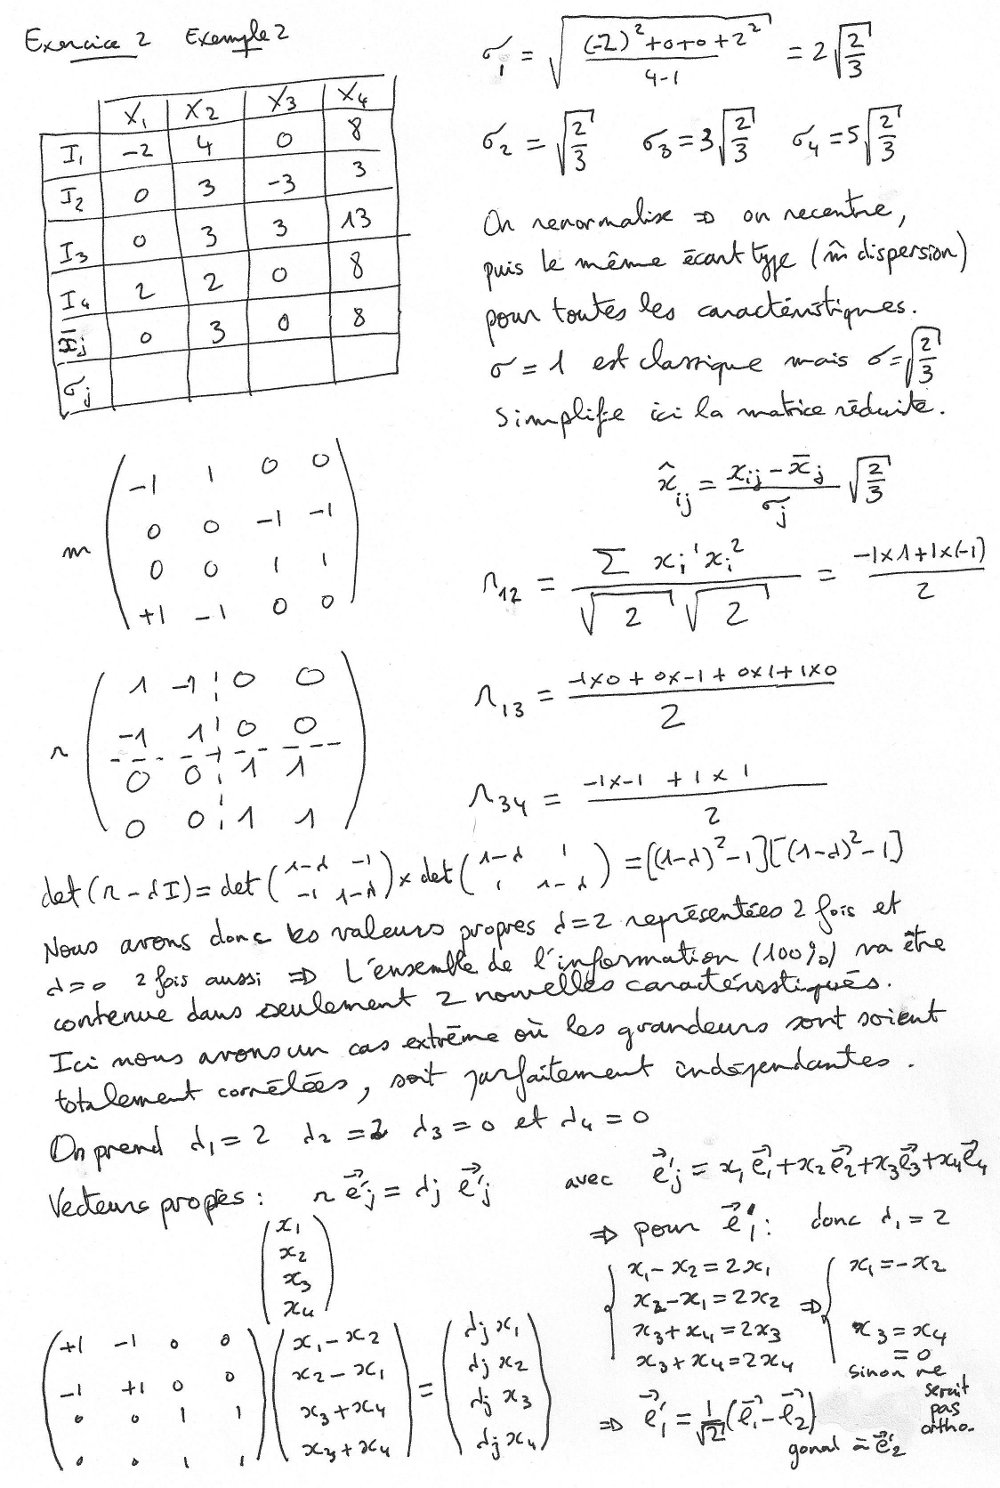 Exercice 2 Exemple 2
X₁ X₂ X₃ X₄
I₁ -2 4 0 8
I₂ 0 3 -3 3
I₃ 0 3 3 13
I₄ 2 2 0 8
x̄j 0 3 0 8
σj
σ₁ = √((-2)²+0+0+2²)/(4-1) = 2√(2/3)
σ₂ = √(2/3) σ₃ = 3√(2/3) σ₄ = 5√(2/3)
On renormalise ⇒ on recentre,
puis le même écart type (m̂ dispersion)
pour toutes les caractéristiques.
σ = 1 est classique mais σ = √(2/3)
simplifie ici la matrice réduite.
x̂ij = (xij - x̄j)/σj √(2/3)
m
-1 1 0 0
0 0 -1 -1
0 0 1 1
+1 -1 0 0
r₁₂ = Σ xi¹ xi² / √2 √2 = (-1×1+1×(-1))/2
r
1 -1 0 0
-1 1 0 0
0 0 1 1
0 0 1 1
r₁₃ = (-1×0 + 0×-1 + 0×1 + 1×0)/2
r₃₄ = (-1×-1 + 1×1)/2
det(r-λI) = det(1-λ -1 -1 1-λ) × det(1-λ 1 1 1-λ) = [(1-λ)²-1][(1-λ)²-1]
Nous avons donc les valeurs propres λ=2 représentées 2 fois et
λ=0 2 fois aussi ⇒ L'ensemble de l'information (100%) va être
contenue dans seulement 2 nouvelles caractéristiques.
Ici nous avons un cas extrême où les grandeurs sont soient
totalement corrélées, soit parfaitement indépendantes.
On prend λ₁=2 λ₂=2 λ₃=0 et λ₄=0
Vecteurs propres : r e⃗'j = λj e⃗'j avec e⃗'j = x₁e⃗₁+x₂e⃗₂+x₃e⃗₃+x₄e⃗₄
x₁
x₂
x₃
x₄
+1 -1 0 0 x₁-x₂ = λj x₁
-1 +1 0 0 x₂-x₁ λj x₂
0 0 1 1 x₃+x₄ λj x₃
0 0 1 1 x₃+x₄ λj x₄
⇒ pour e⃗'₁ : donc λ₁=2
x₁-x₂=2x₁ x₁=-x₂
x₂-x₁=2x₂ ⇒
x₃+x₄=2x₃ x₃=x₄
x₃+x₄=2x₄ =0
sinon ne
serait
pas
ortho-
gonal à e⃗'₂
⇒ e⃗'₁ = 1/√2 (e⃗₁-e⃗₂)